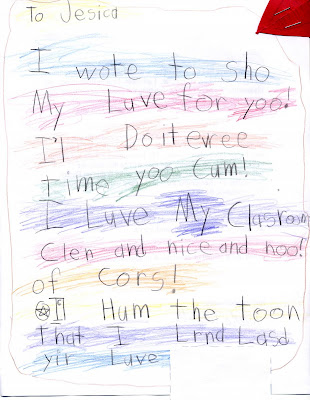 To Jesica
I wote to sho
My Luve for yoo!
I'l Do it evree
time yoo Cum!
I Luve My Clasroom
Clen and nice and noo!
of Cors!
I Hum the toon
that I Lrnd Lasd
yir Luve